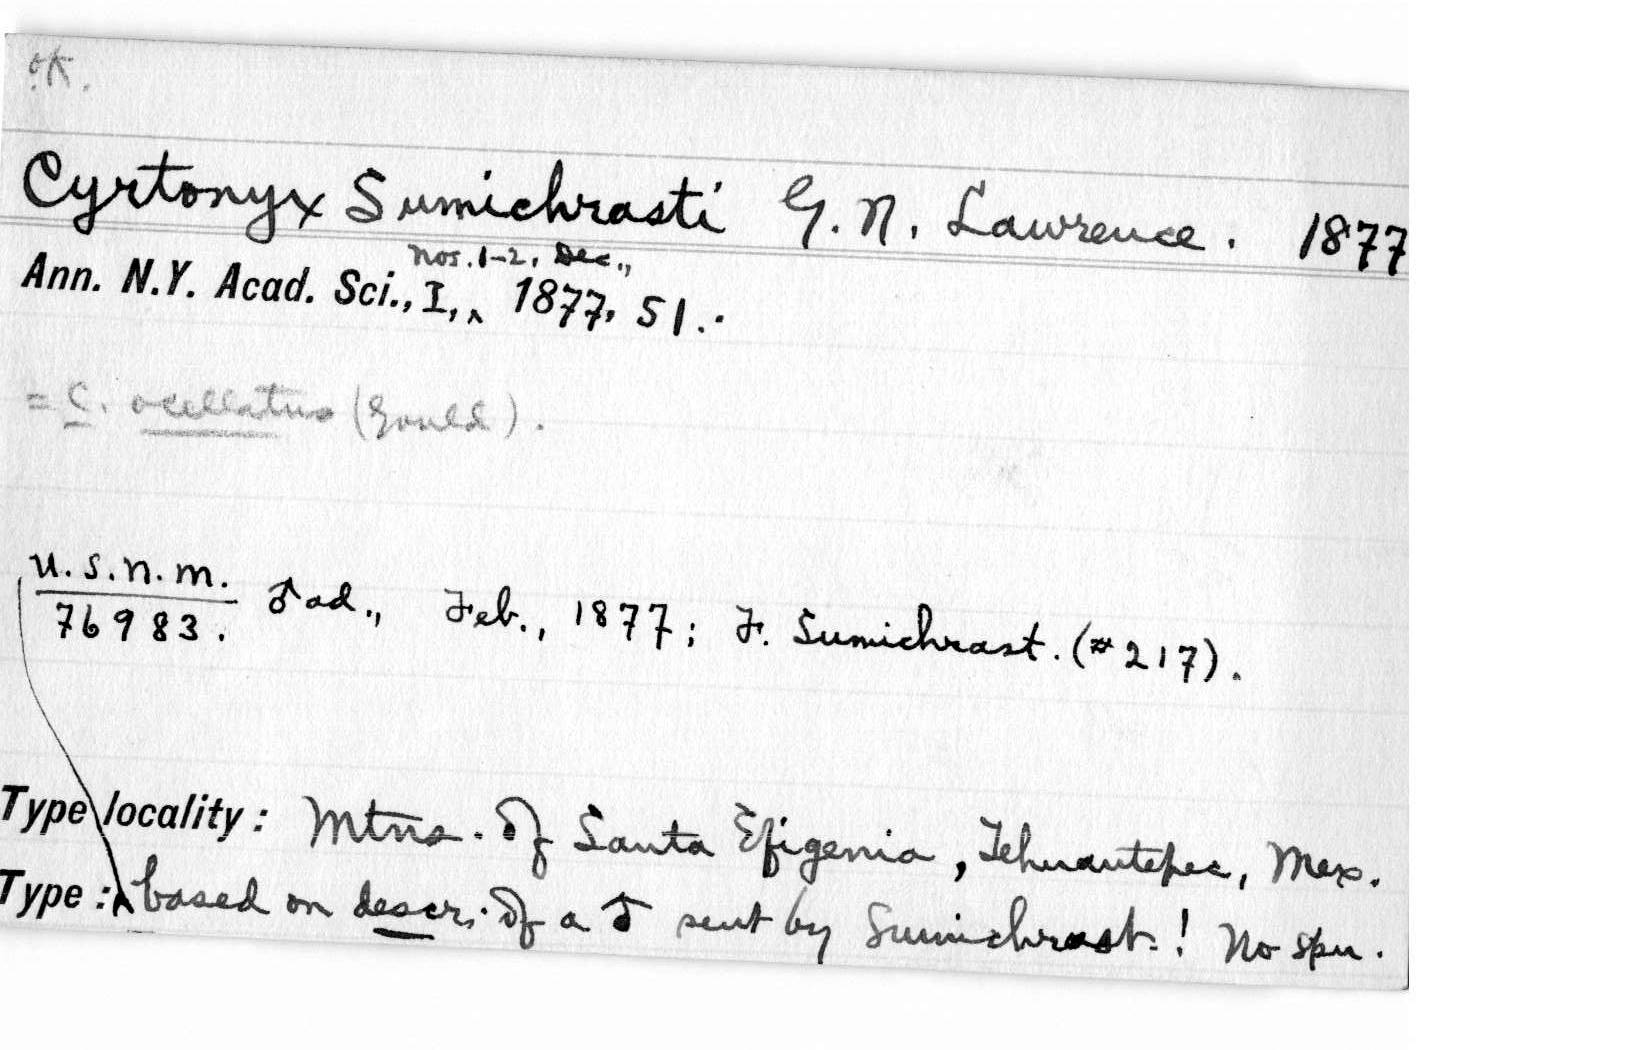 OK.
Cyrtonyx Sumichrasti G. N. Lawrence. 1877
Nos. 1-2, Dec.,
Ann. N.Y. Acad. Sci., I,‸ 1877, 51.
= C. ocellatus (Gould).
U.S.N.M. ♂ ad., Feb., 1877; F. Sumichrast. (#217).
76983.
Type locality: Mtns. of Santa Efigenia, Tehuantepec, Mex.
Type: based on descr. of a ♂ sent by Sumichrast! No spn.